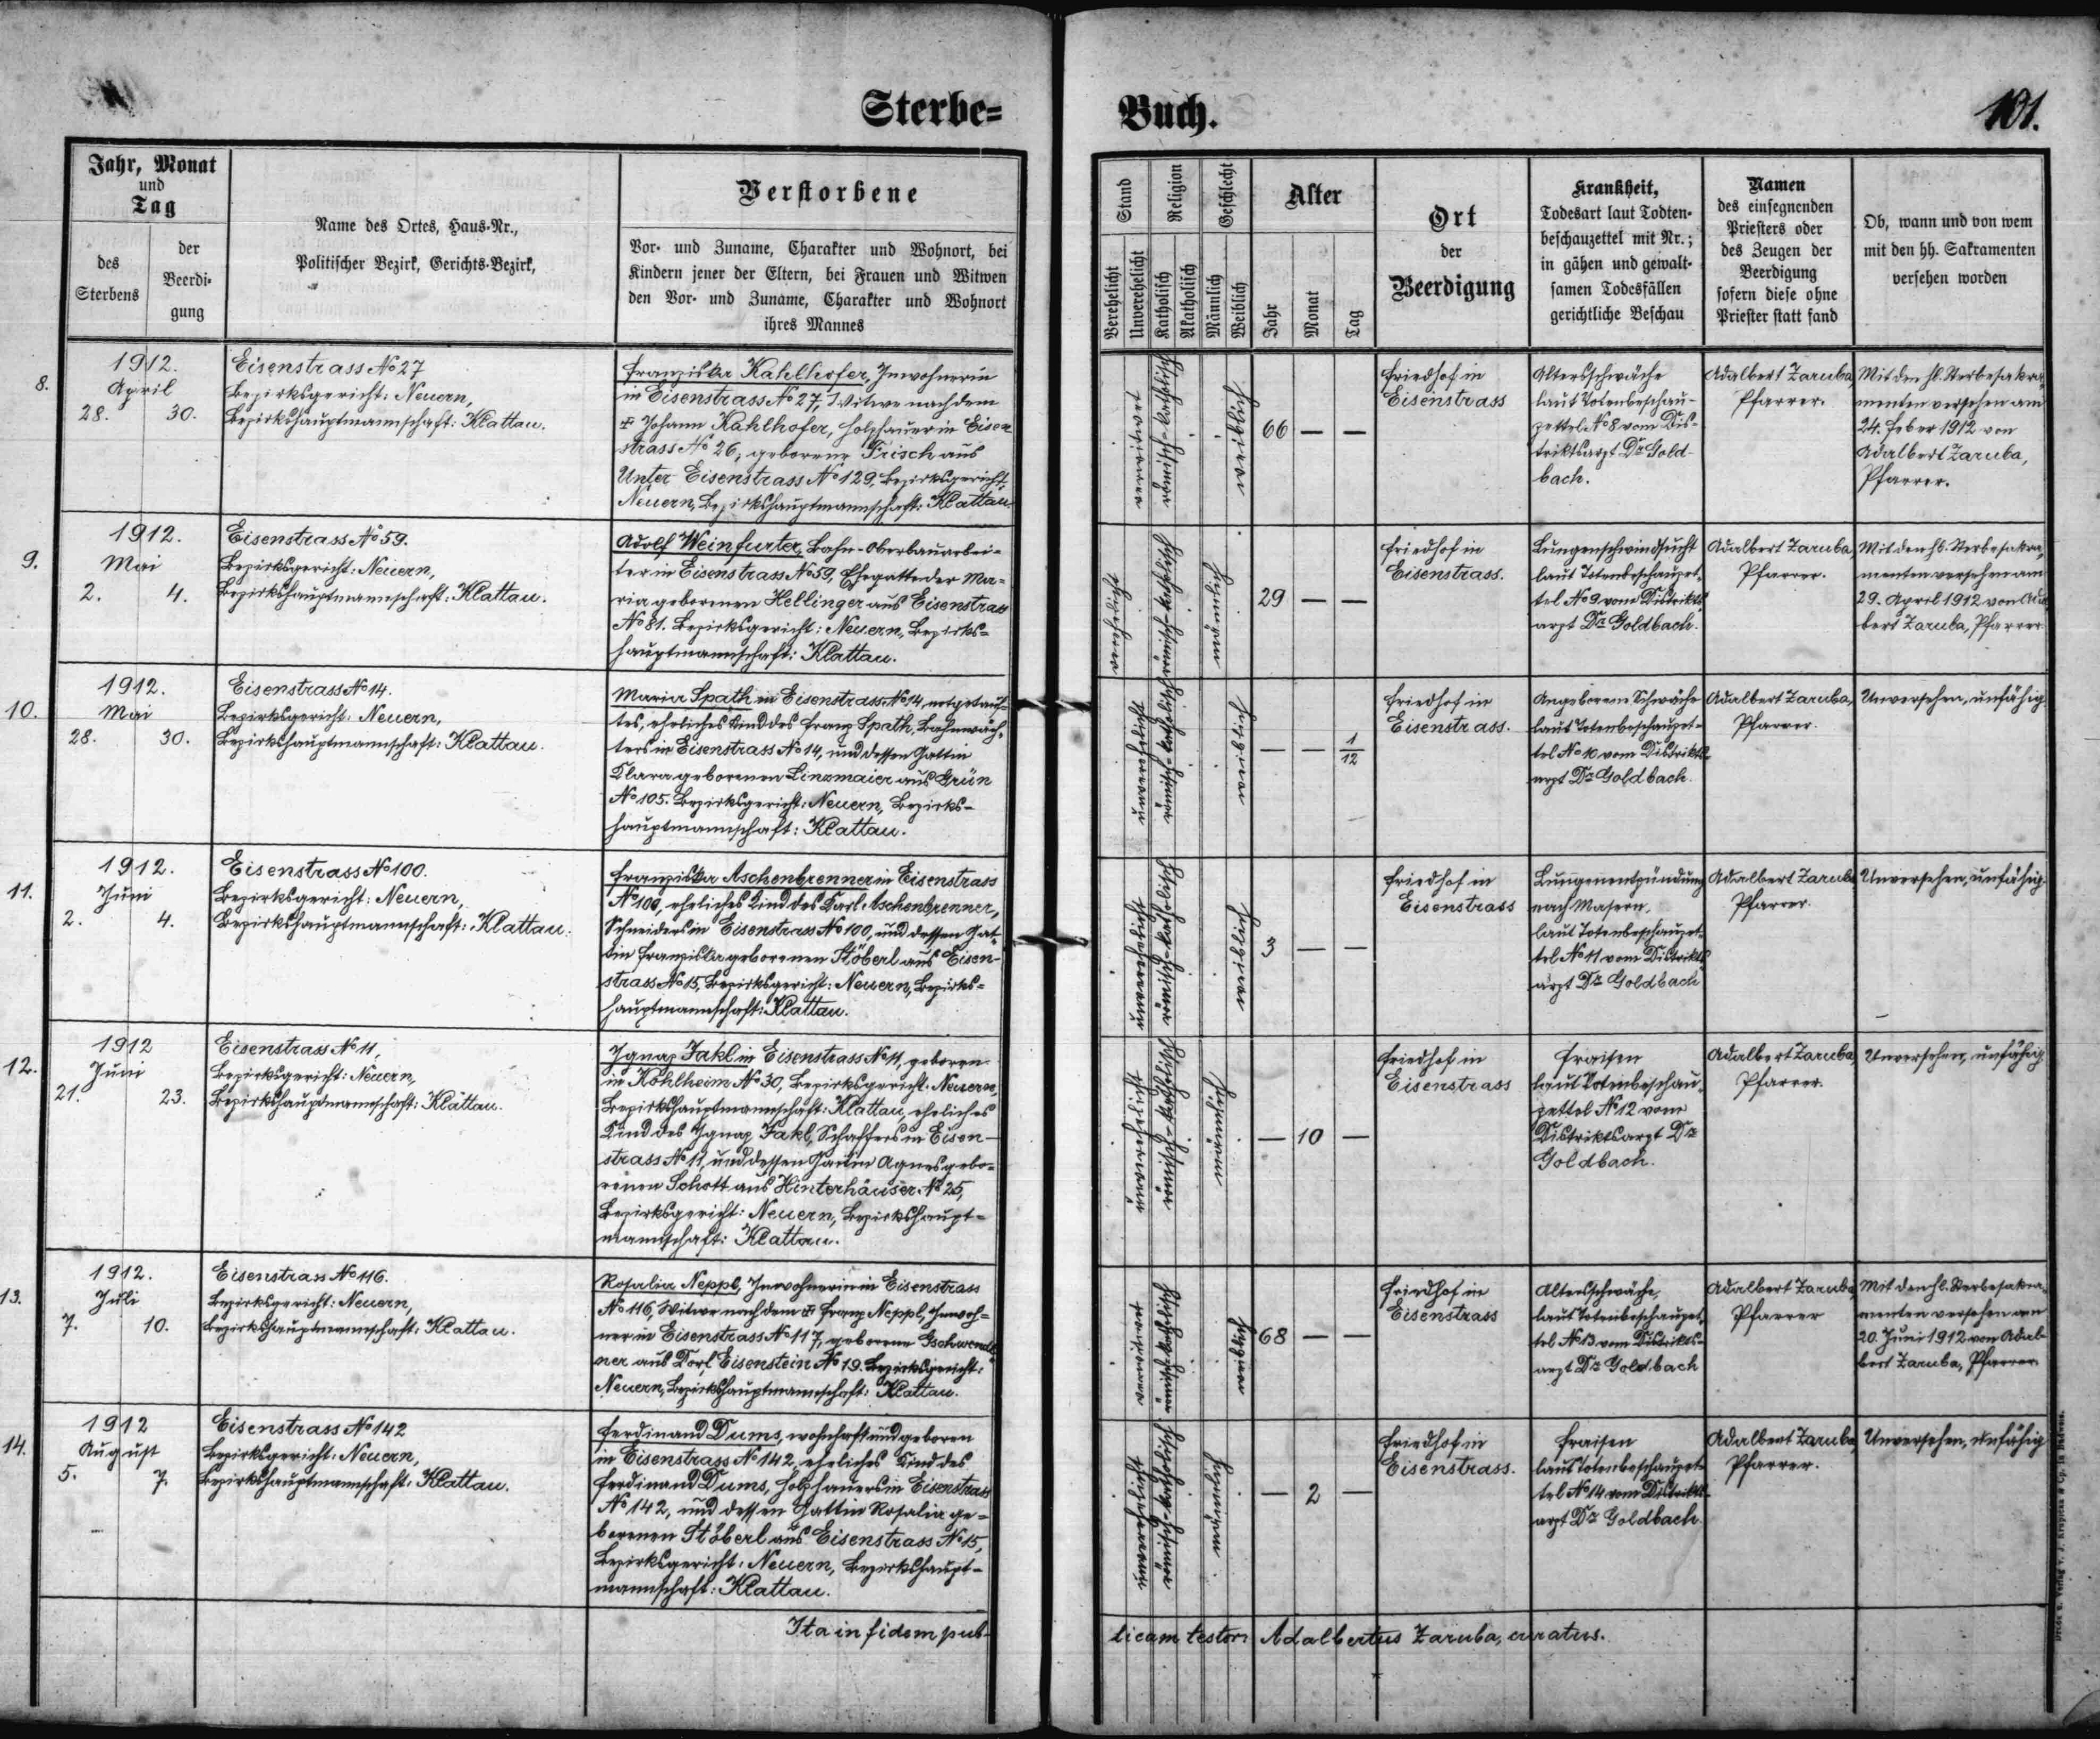 Sterbe=
Buch.
101.
Jahr, Monat
und
Tag
des
Sterbens
der
Beerdi-
gung
Name des Ortes, Haus-Nr.,
Politischer Bezirk, Gerichts-Bezirk,
Verstorbene
Vor- und Zuname, Charakter und Wohnort, bei
Kindern jener der Eltern, bei Frauen und Witwen
den Vor- und Zuname, Charakter und Wohnort
ihres Mannes
Stand
Verehelicht
Unverehelicht
Religion
Katholisch
Akatholisch
Geschlecht
Männlich
Weiblich
Alter
Jahr
Monat
Tag
Ort
der
Beerdigung
Krankheit,
Todesart laut Todten-
beschauzettel mit Nr.;
in gähen und gewalt-
samen Todesfällen
gerichtliche Beschau
Namen
des einsegnenden
Priesters oder
des Zeugen der
Beerdigung
sofern diese ohne
Priester statt fand
Ob, wann und von wem
mit den hh. Sakramenten
versehen worden
8.
1912.
April
28. 30.
Eisenstrass No 27
Bezirksgericht: Neuern,
Bezirkshauptmannschaft: Klattau.
Franziska Kahlhofer, Inwohnerin
in Eisenstrass No 27, Witwe nach dem
✠ Johann Kahlhofer, Holzhauer in Eisen
strass No 26, geborene Frisch aus
Unter Eisenstrass No 129, Bezirksgericht
Neuern, Bezirkshauptmannschaft: Klattau.
verwitwet
römisch-katholisch
weiblich
66 — —
Friedhof in
Eisenstrass
Altersschwäche
laut Totenbeschau-
zettel No 8 vom Dis-
triktsarzt Dr Gold-
bach.
Adalbert Zaruba,
Pfarrer.
Mit den hl. Sterbesakra-
menten versehen am
24. Feber 1912 von
Adalbert Zaruba,
Pfarrer.
9.
1912.
Mai
2. 4.
Eisenstrass No 59.
Bezirksgericht: Neuern,
Bezirkshauptmannschaft: Klattau.
Adolf Weinfurter, Bahn-Oberbauarbei-
ter in Eisenstrass No 59, Ehegatte der Ma-
ria geborenen Hellinger aus Eisenstrass
No 81. Bezirksgericht: Neuern, Bezirks-
hauptmannschaft: Klattau.
verehelicht
römisch-katholisch
männlich
29 — —
Friedhof in
Eisenstrass.
Lungenschwindsucht
laut Totenbeschauzet-
tel No 9 vom Distrikts-
arzt Dr Goldbach.
Adalbert Zaruba,
Pfarrer.
Mit den hl. Sterbesakra-
menten versehen am
29. April 1912 von Adal
bert Zaruba, Pfarrer
10.
1912.
Mai
28. 30.
Eisenstrass No 14.
Bezirksgericht: Neuern,
Bezirkshauptmannschaft: Klattau.
Maria Spath in Eisenstrass No 14, notgetauf-
tes, eheliches Kind des Franz Spath, Bahnwäch-
ters in Eisenstrass No 14, und dessen Gattin
Klara geborenen Linzmaier aus Grün
No 105. Bezirksgericht: Neuern, Bezirks-
hauptmannschaft: Klattau.
unverehelicht
römisch-katholisch
weiblich
— — 1/12
Friedhof in
Eisenstrass.
Angeborene Schwäche
laut Totenbeschauzet-
tel No 10 vom Distrikts-
arzt Dr Goldbach.
Adalbert Zaruba,
Pfarrer.
Unversehen, unfähig
11.
1912.
Juni
2. 4.
Eisenstrass No 100.
Bezirksgericht: Neuern,
Bezirkshauptmannschaft: Klattau.
Franziska Aschenbrenner in Eisenstrass
No 100, eheliches Kind des Karl Aschenbrenner,
Schneiders in Eisenstrass No 100, und dessen Gat-
tin Franziska geborenen Stöberl aus Eisen-
strass No 15, Bezirksgericht: Neuern, Bezirks-
hauptmannschaft: Klattau.
unverehelicht
römisch-katholisch
weiblich
3 — —
Friedhof in
Eisenstrass
Lungenentzündung
nach Masern,
laut Totenbeschauzet-
tel No 11 vom Distrikts
arzt Dr Goldbach
Adalbert Zaruba
Pfarrer.
Unversehen, unfähig.
12.
1912
Juni
21. 23.
Eisenstrass No 11,
Bezirksgericht: Neuern,
Bezirkshauptmannschaft: Klattau.
Ignaz Jakl in Eisenstrass No 11, geboren
in Kohlheim No 30, Bezirksgericht: Neuern,
Bezirkshauptmannschaft: Klattau, eheliches
Kind des Ignaz Jakl, Schaffers in Eisen-
strass No 11, und dessen Gattin Agnes gebo-
renen Schott aus Hinterhäuser No 25,
Bezirksgericht: Neuern, Bezirkshaupt-
mannschaft: Klattau.
unverehelicht
römisch-katholisch
männlich
— 10 —
Friedhof in
Eisenstrass
Fraisen
laut Totenbeschau-
zettel No 12 vom
Distriktsarzt Dr
Goldbach.
Adalbert Zaruba,
Pfarrer.
Unversehen, unfähig
13.
1912.
Juli
7. 10.
Eisenstrass No 116.
Bezirksgericht: Neuern,
Bezirkshauptmannschaft: Klattau.
Rosalia Neppl, Inwohnerin in Eisenstrass
No 116, Witwe nach dem ✠ Franz Neppl, Inwoh-
ner in Eisenstrass No 117, geborene Gschwend
ner aus Dorf Eisenstein No 19. Bezirksgericht:
Neuern, Bezirkshauptmannschaft: Klattau.
verwitwet
römisch-katholisch
weiblich
68 — —
Friedhof in
Eisenstrass
Altersschwäche,
laut Totenbeschauzet-
tel No 13 vom Distrikts-
arzt Dr Goldbach
Adalbert Zaruba,
Pfarrer
Mit den hl. Sterbesakra-
menten versehen am
20. Juni 1912 von Adal-
bert Zaruba, Pfarrer.
14.
1912
August
5. 7.
Eisenstrass No 142
Bezirksgericht: Neuern,
Bezirkshauptmannschaft: Klattau.
Ferdinand Dums, wohnhaft und geboren
in Eisenstrass No 142, eheliches Kind des
Ferdinand Dums, Holzhauers in Eisenstrass
No 142, und dessen Gattin Rosalia ge-
borenen Stöberl aus Eisenstrass No 15,
Bezirksgericht: Neuern, Bezirkshaupt-
mannschaft: Klattau.
unverehelicht
römisch-katholisch
männlich
— 2 —
Friedhof in
Eisenstrass.
Fraisen
laut Totenbeschauzet-
tel No 14 vom Distrikts-
arzt Dr Goldbach
Adalbert Zaruba
Pfarrer.
Unversehen, unfähig
Ita in fidem pub-
licam testor: Adalbertus Zaruba, curatus.